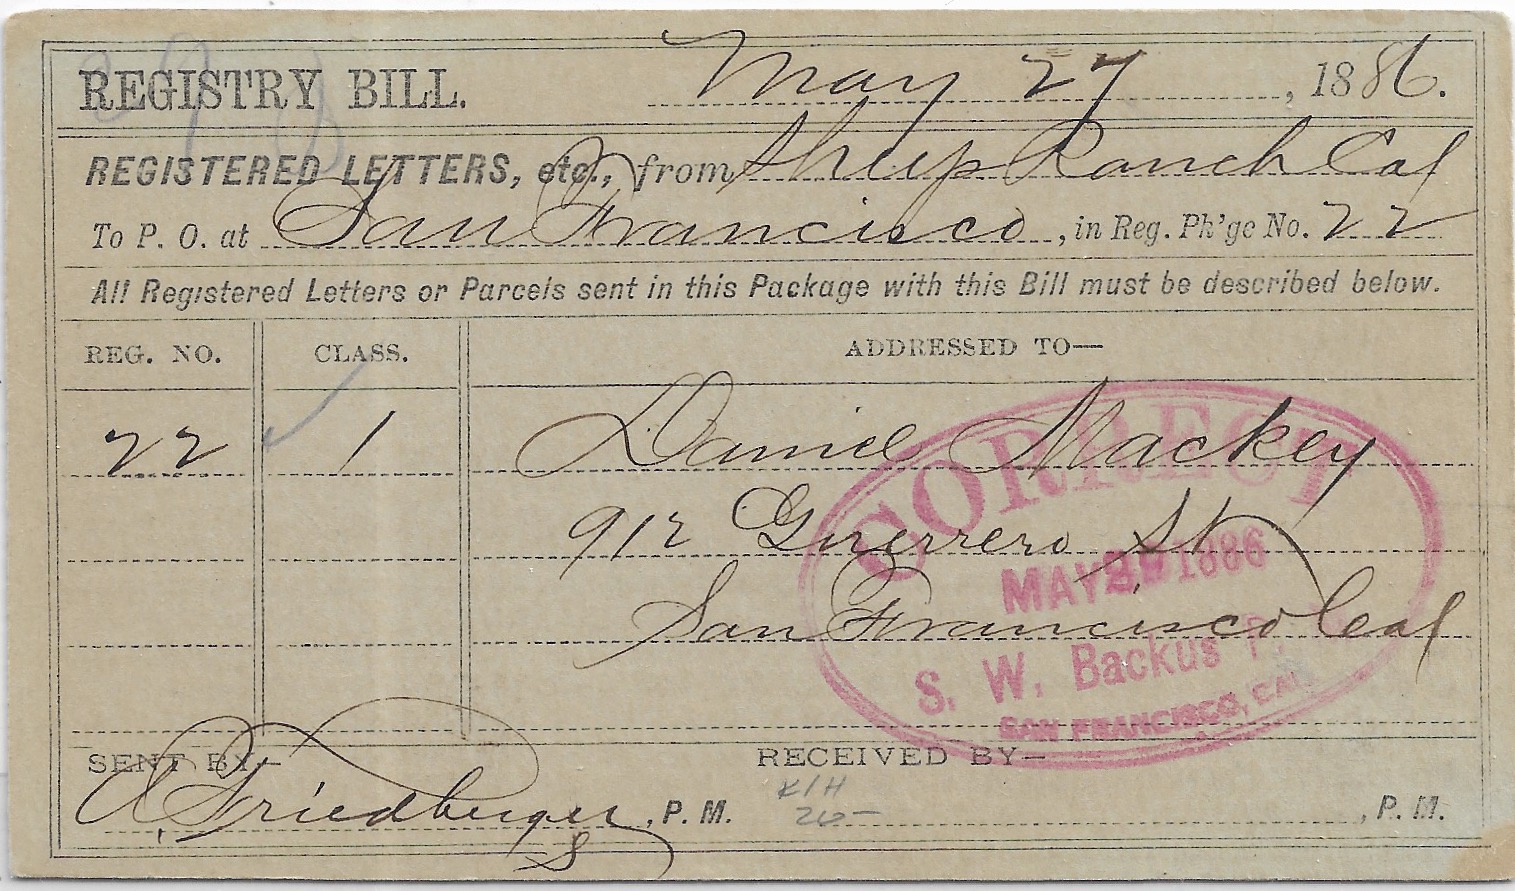 REGISTRY BILL. May 27, 1886.
REGISTERED LETTERS, etc., from Sheep Ranch Cal
To P. O. at San Francisco, in Reg. Ph'ge No. 22
All Registered Letters or Parcels sent in this Package with this Bill must be described below.
REG. NO. CLASS. ADDRESSED TO—
22 1 Daniel Mackey
912 Guerrero St
San Francisco Cal
CORRECT
MAY 1886
S. W. Backus P.
SAN FRANCISCO, CAL
SENT BY— RECEIVED BY—
A. Friedberger, P. M. , P. M.
K/H
20-